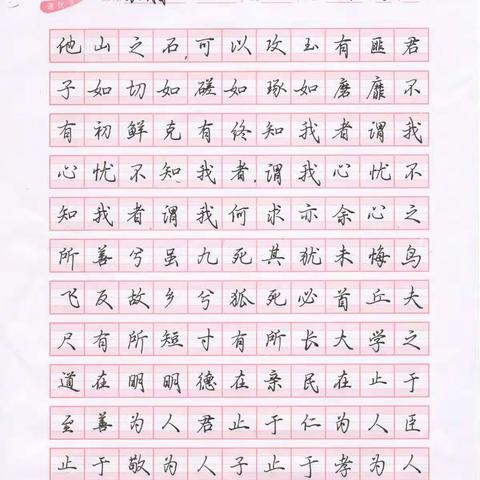 他山之石,可以攻玉有匪君
子如切如磋如琢如磨靡不
有初鲜克有终知我者谓我
心忧不知我者,谓我心忧不
知我者谓我何求亦余心之
所善兮虽九死其犹未悔鸟
飞反故乡兮狐死必首丘夫
尺有所短寸有所长大学之
道在明明德在亲民在止于
至善为人君止于仁为人臣
止于敬为人子止于孝为人